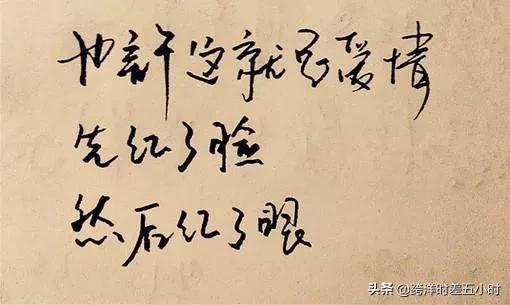 也許这就是爱情
先红了脸
然后红了眼
头条 @跨洋时差五小时